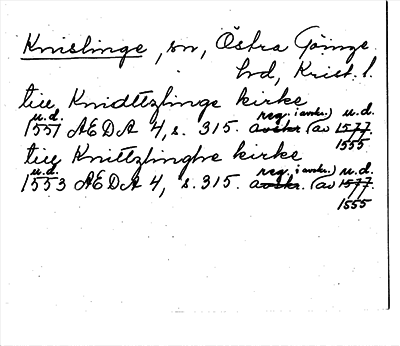 Knislinge, sn, Östra Göinge
hd, Krist. l.
till Knidttzlinge kirke
u.d. reg. i avskr. u.d.
1551 AEDA 4, s. 315. avskr. (av 1577.
1555
till Knittzlinghe kirke
u.d. reg. i avskr.) u.d.
1553 AEDA 4, s. 315. avskr. (av 1577.
1555